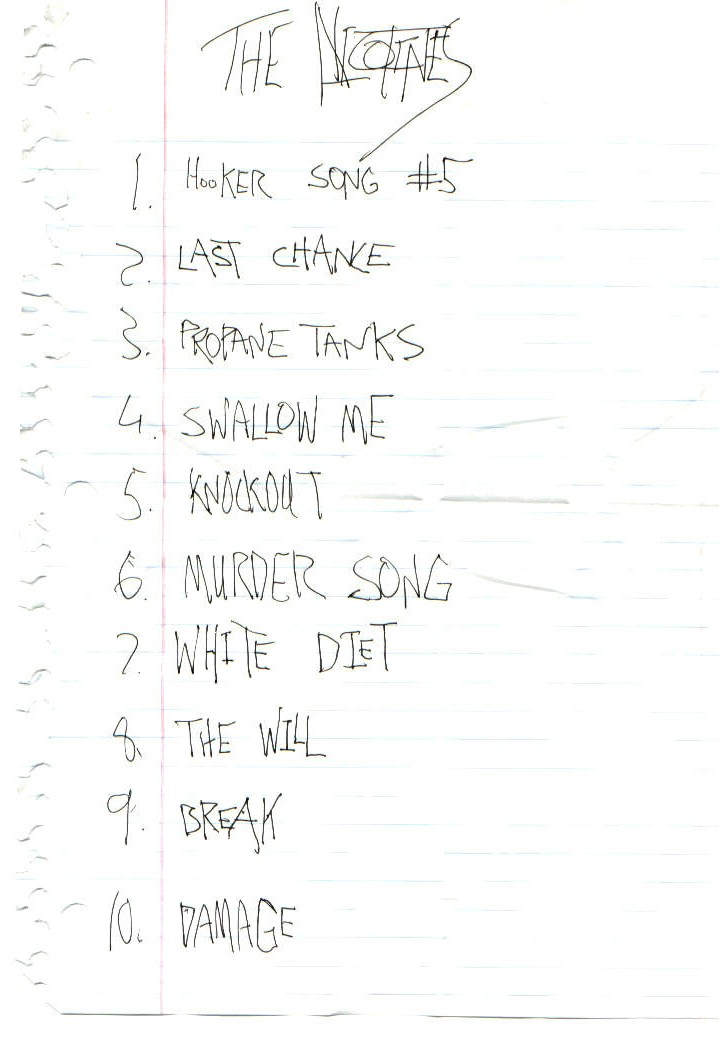 THE NICOTINES
1. HOOKER SONG #5
2. LAST CHANCE
3. PROPANE TANKS
4. SWALLOW ME
5. KNOCKOUT
6. MURDER SONG
7. WHITE DIET
8. THE WILL
9. BREAK
10. DAMAGE